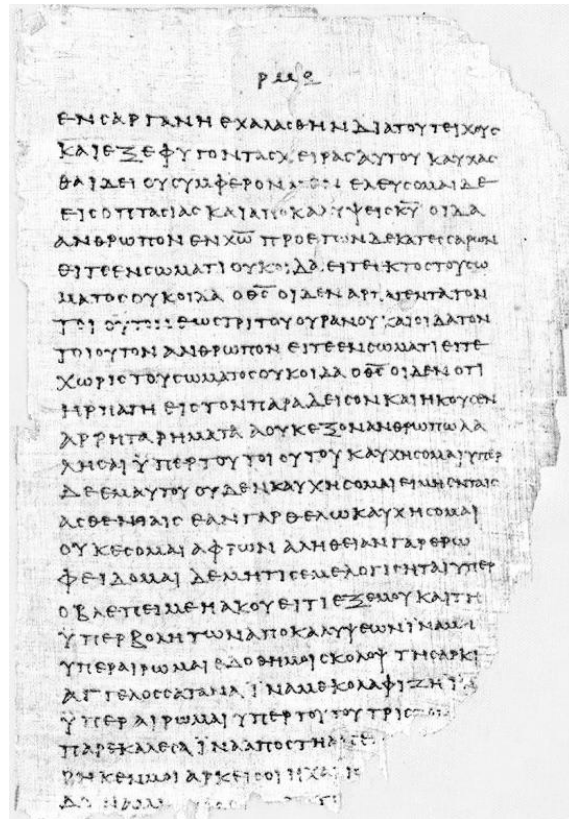 ΕΝ ϹΑΡΓΑΝΗ ΕΧΑΛΑϹΘΗΝ ΔΙΑ ΤΟΥ ΤΕΙΧΟΥϹ
ΚΑΙ ΕΞΕΦΥΓΟΝ ΤΑϹ ΧΕΙΡΑϹ ΑΥΤΟΥ ΚΑΥΧΑϹ
ΘΑΙ ΔΕΙ ΟΥ ϹΥΜΦΕΡΟΝ ΕΛΕΥϹΟΜΑΙ ΔΕ
ΕΙϹ ΟΠΤΑϹΙΑϹ ΚΑΙ ΑΠΟΚΑΛΥΨΕΙϹ Κ̅Υ̅ ΟΙΔΑ
ΑΝΘΡΩΠΟΝ ΕΝ Χ̅Ω̅ ΠΡΟ ΕΤΩΝ ΔΕΚΑΤΕϹϹΑΡΩΝ
ΕΙΤΕ ΕΝ ϹΩΜΑΤΙ ΟΥΚ ΟΙΔΑ ΕΙΤΕ ΕΚΤΟϹ ΤΟΥ ϹΩ
ΜΑΤΟϹ ΟΥΚ ΟΙΔΑ Ο Θ̅Ϲ̅ ΟΙΔΕΝ ΑΡΠΑΓΕΝΤΑ ΤΟΝ
ΤΟΙΟΥΤΟΝ ΕΩϹ ΤΡΙΤΟΥ ΟΥΡΑΝΟΥ ΚΑΙ ΟΙΔΑ ΤΟΝ
ΤΟΙΟΥΤΟΝ ΑΝΘΡΩΠΟΝ ΕΙΤΕ ΕΝ ϹΩΜΑΤΙ ΕΙΤΕ
ΧΩΡΙϹ ΤΟΥ ϹΩΜΑΤΟϹ ΟΥΚ ΟΙΔΑ Ο Θ̅Ϲ̅ ΟΙΔΕΝ ΟΤΙ
ΗΡΠΑΓΗ ΕΙϹ ΤΟΝ ΠΑΡΑΔΕΙϹΟΝ ΚΑΙ ΗΚΟΥϹΕΝ
ΑΡΡΗΤΑ ΡΗΜΑΤΑ Α ΟΥΚ ΕΞΟΝ ΑΝΘΡΩΠΩ ΛΑ
ΛΗϹΑΙ ΫΠΕΡ ΤΟΥ ΤΟΙΟΥΤΟΥ ΚΑΥΧΗϹΟΜΑΙ ΥΠΕΡ
ΔΕ ΕΜΑΥΤΟΥ ΟΥΔΕΝ ΚΑΥΧΗϹΟΜΑΙ ΕΙ ΜΗ ΕΝ ΤΑΙϹ
ΑϹΘΕΝΕΙΑΙϹ ΕΑΝ ΓΑΡ ΘΕΛΩ ΚΑΥΧΗϹΟΜΑΙ
ΟΥΚ ΕϹΟΜΑΙ ΑΦΡΩΝ ΑΛΗΘΕΙΑΝ ΓΑΡ ΕΡΩ
ΦΕΙΔΟΜΑΙ ΔΕ ΜΗ ΤΙϹ ΕΜΕ ΛΟΓΙϹΗΤΑΙ ΥΠΕΡ
Ο ΒΛΕΠΕΙ ΜΕ Η ΑΚΟΥΕΙ ΤΙ ΕΞ ΕΜΟΥ ΚΑΙ ΤΗ
ΫΠΕΡΒΟΛΗ ΤΩΝ ΑΠΟΚΑΛΥΨΕΩΝ ΙΝΑ ΜΗ
ΥΠΕΡΑΙΡΩΜΑΙ ΕΔΟΘΗ ΜΟΙ ϹΚΟΛΟΨ ΤΗ ϹΑΡΚΙ
ΑΓΓΕΛΟϹ ϹΑΤΑΝΑ ΪΝΑ ΜΕ ΚΟΛΑΦΙΖΗ
ΫΠΕΡΑΙΡΩΜΑΙ ΥΠΕΡ ΤΟΥΤΟΥ ΤΡΙϹ
ΠΑΡΕΚΑΛΕϹΑ ΪΝΑ ΑΠΟϹΤΗ
ΡΗΚΕΝ ΜΟΙ ΑΡΚΕΙ ϹΟΙ Η ΧΑΡΙϹ